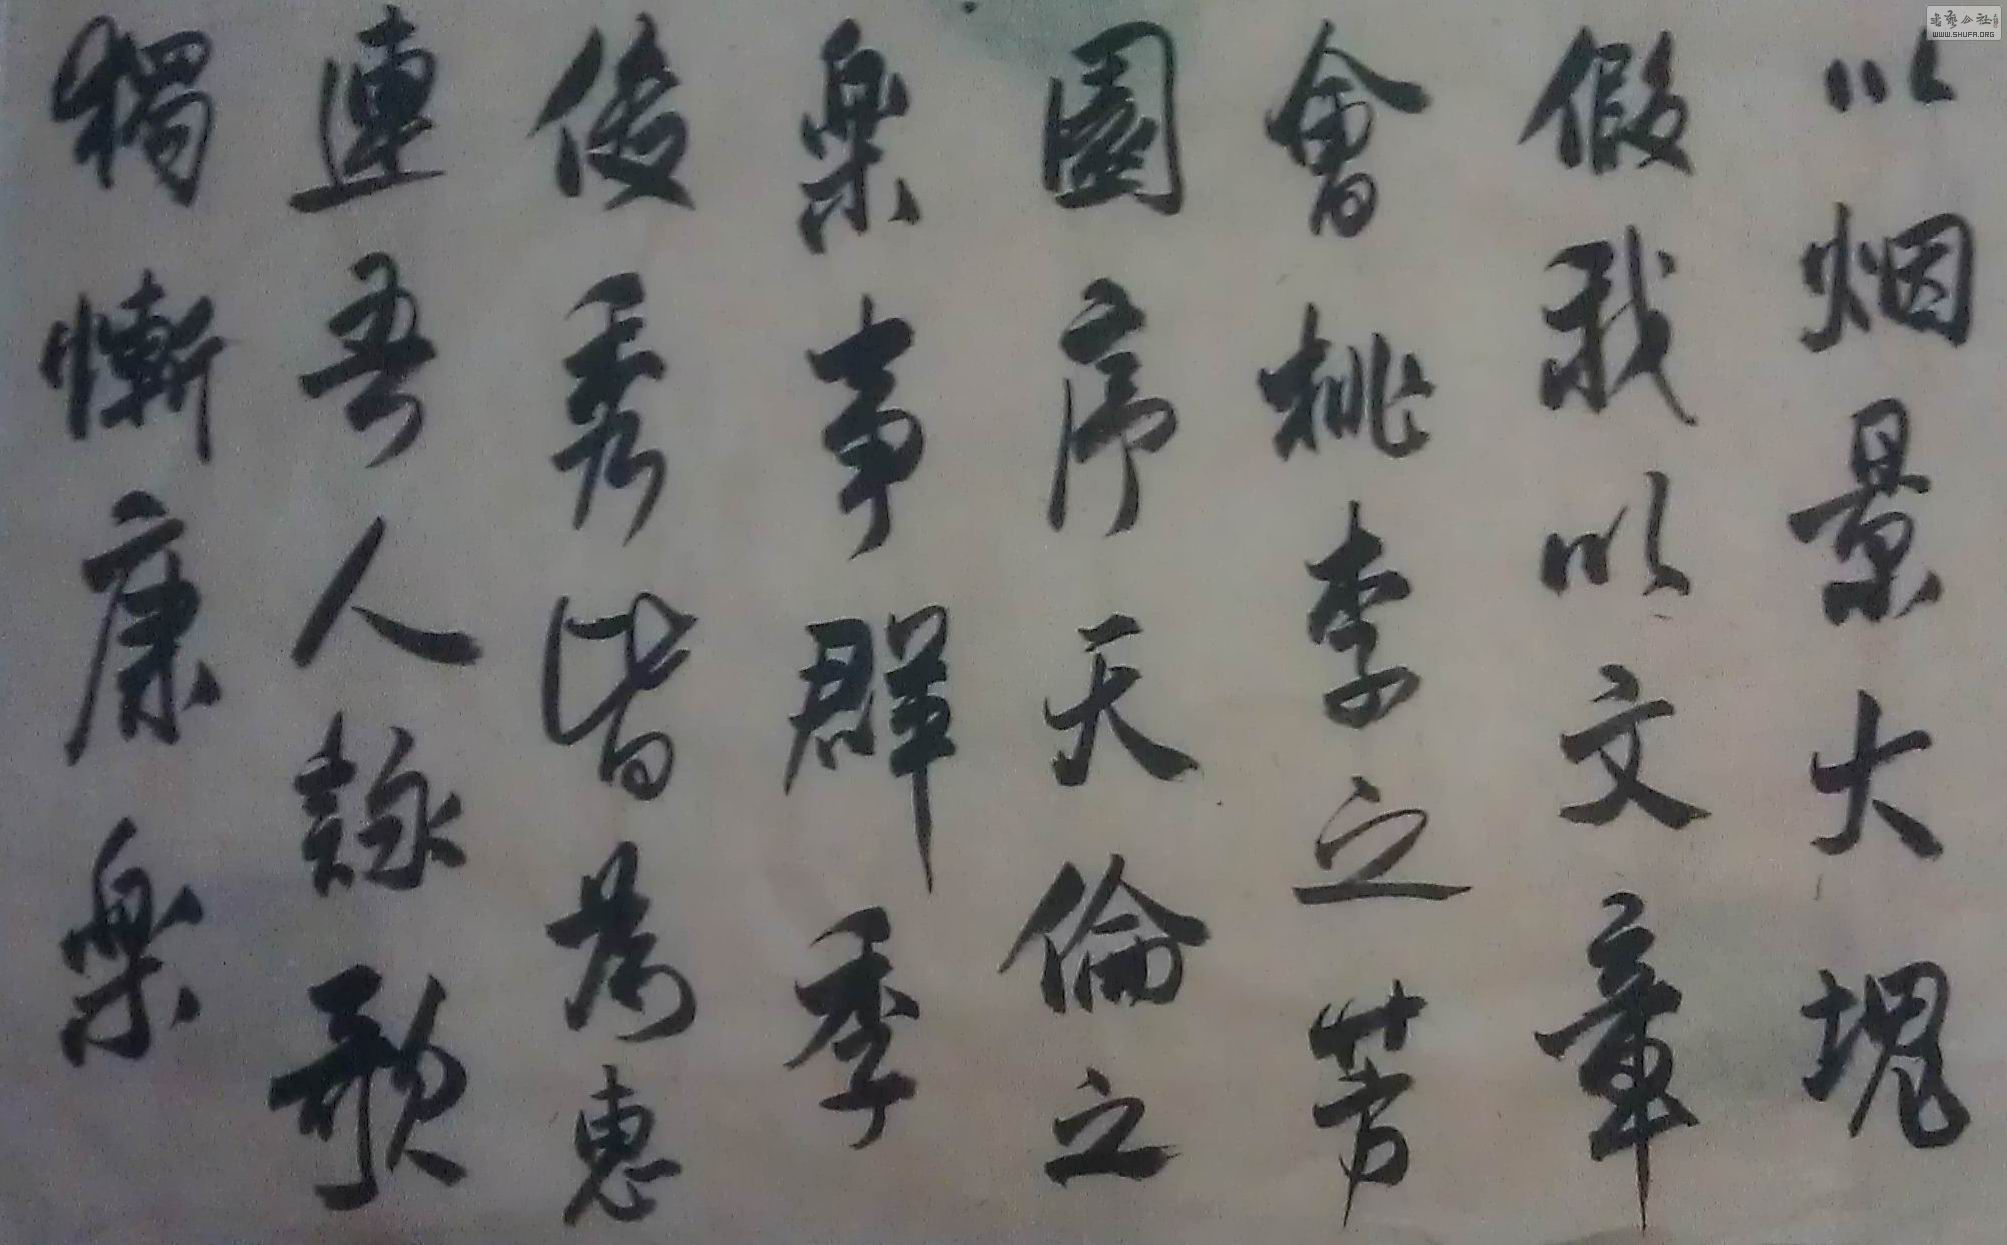 以烟景大塊
假我以文章
會桃李之芳
園序天倫之
樂事群季
俊秀皆為惠
連吾人詠歌
獨慚康樂
書藝公社
WWW.SHUFA.ORG